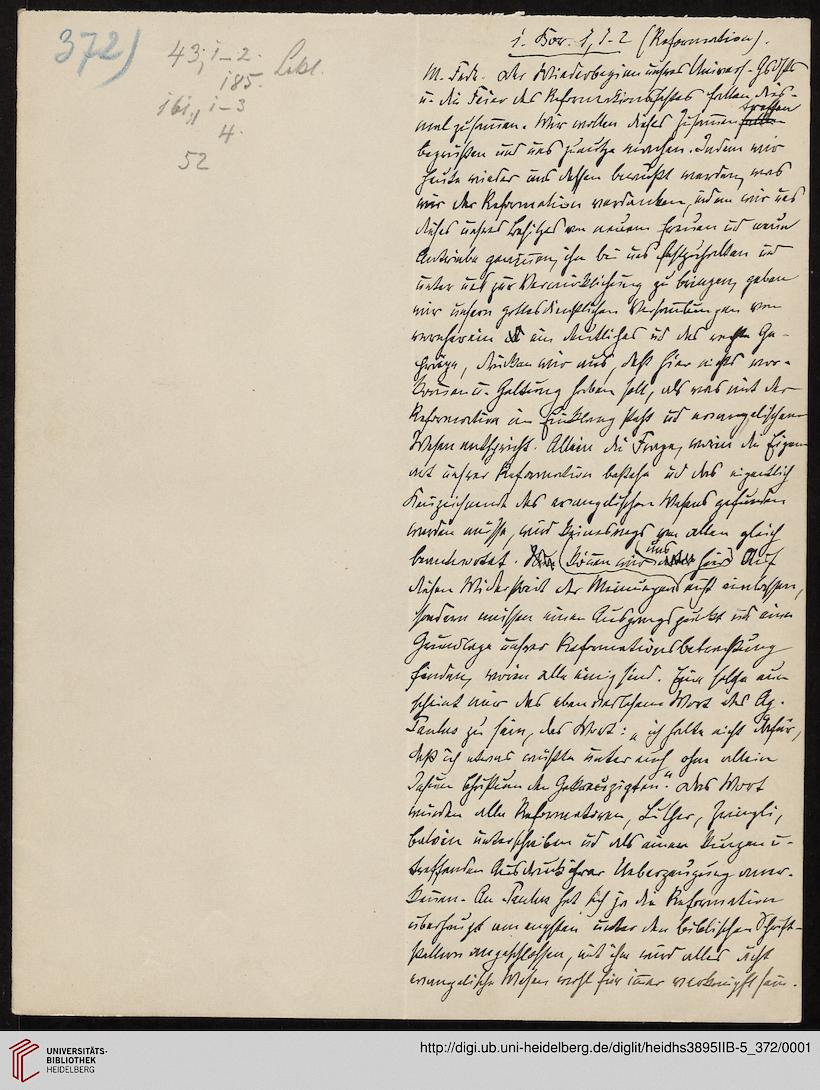 372)
43, 1–2. Lekt.
185.
161, 1–3
4.
52
1. Kor. 2, 1–2 (Reformation).
M. Frde. Der Wiederbeginn unsres Univers.-Gdsts
u. die Feier des Reformationsfestes fallen dies-
mal zusammen. Wir wollen dieses Zusammentreffen
begrüßen und uns zunutze machen. Indem wir
heute wieder uns dessen bewußt werden, was
wir der Reformation verdanken, indem wir uns
dieses unsres Besitzes von neuem freuen ud neue
Antriebe gewinnen, ihn bei uns festzuhalten ud
unter uns zur Verwirklichung zu bringen, geben
wir unsern gottesdienstlichen Versammlungen von
vornherein ein deutliches ud das rechte Ge-
präge, drücken wir aus, daß hier nichts vor-
kommen u. Geltung haben soll, als was mit der
Reformation im Einklang steht ud evangelischem
Wesen entspricht. Allein die Frage, worin die Eigen-
art unsrer Reformation bestehe ud das eigentlich
Kennzeichnende des evangelischen Wesens gefunden
werden müsse, wird keineswegs von allen gleich
beantwortet. können wir uns hier auf
diesen Widerstreit der Meinungen nicht einlassen,
sondern müssen einen Ausgangspunkt ud eine
Grundlage unsrer Reformationsbetrachtung
finden, worin alle einig sind. Eine solche nun
scheint mir das eben verlesene Wort des Ap.
Paulus zu sein, das Wort: „ich halte nicht dafür,
daß ich etwas wüßte unter euch ohne allein
Jesum Christum den Gekreuzigten." Das Wort
würden alle Reformatoren, Luther, Zwingli,
Calvin unterschreiben ud als einen kurzen u.
treffenden Ausdruck ihrer Ueberzeugung aner-
kennen. An Paulus hat sich ja die Reformation
überhaupt am engsten unter den biblischen Schrift-
stellern angeschlossen, mit ihm wird alles echt
evangelische Wesen wohl für immer verknüpft sein.
UNIVERSITÄTS-
BIBLIOTHEK
HEIDELBERG
http://digi.ub.uni-heidelberg.de/diglit/heidhs3895IIB-5_372/0001